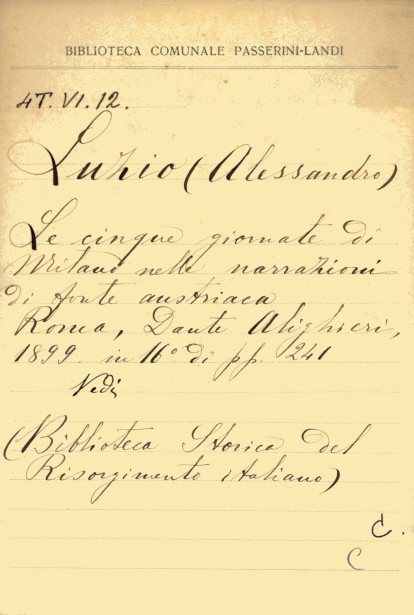 BIBLIOTECA COMUNALE PASSERINI-LANDI
4T. VI. 12.
Luzio (Alessandro)
Le cinque giornate di
Milano nelle narrazioni
di fonte austriaca
Roma, Dante Alighieri,
1899. in 16° di pp. 241
Vedi
(Biblioteca Storica del
Risorgimento italiano)
C.
C